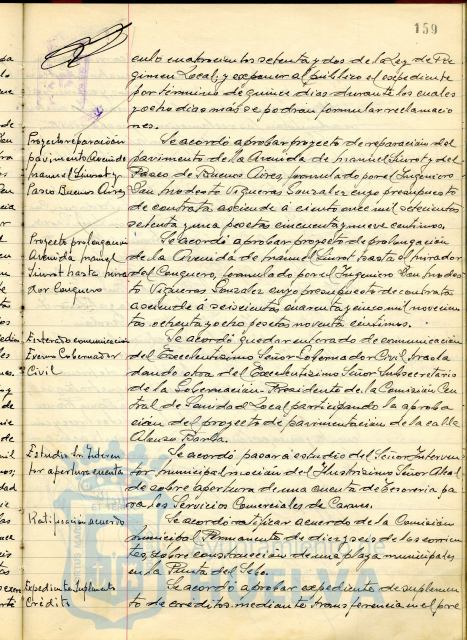 159
culo cuatrocientos setenta y dos de la Ley de Ré
gimen Local; y exponer al público el expediente
por término de quince dias durante los cuales
y ocho dias más se podrán formular reclamacio
nes.
Proyecto reparación
pavimento Avenida
Manuel Siurot y
Paseo Buenos Aires
Se acordó aprobar proyecto de reparación del
pavimento de la Avenida de Manuel Siurot y del
Paseo de Buenos Aires, formulado por el Ingeniero
Don Modesto Vigueras Gonzalez cuyo presupuesto
de contrata asciende á ciento once mil setecientos
setenta y una pesetas cincuenta y nueve centimos.
Proyecto prolongación
Avenida Manuel
Siurot hasta mira
dor Conquero
Se acordó aprobar proyecto de prolongación
de la Avenida de Manuel Siurot hasta el mirador
del Conquero, formulado por el Ingeniero Don Modes
to Vigueras Gonzalez cuyo presupuesto de contrata
asciende á seiscientas cuarenta y cinco mil novecien
tas ochenta y ocho pesetas noventa centimos.
Enterado comunicación
Excmo Gobernador
Civil
Se acordó quedar enterado de comunicación
del Excelentisimo Señor Gobernador Civil trasla
dando otra del Excelentisimo Señor Subsecretario
de la Gobernación-Presidente de la Comisión Cen
tral de Sanidad Local participando la aproba
ción del proyecto de pavimentación de la calle
Alonso Barba.
Estudio Sr Interven
tor apertura cuenta
Se acordó pasar a estudio del Señor Interven
tor municipal moción del Ilustrisimo Señor Alcal
de sobre apertura de una cuenta de Tesoreria pa
ra los Servicios Comerciales de
Ratificación acuerdo
Se acordó ratificar acuerdo de la Comisión
Municipal Permanente de diez y seis de los corrien
tes, sobre construcción de una plaza municipales
en la Punta del Sebo.
Expediente Suplemento
Crédito
Se acordó aprobar expediente de suplemen
to de créditos mediante transferencia en el pre